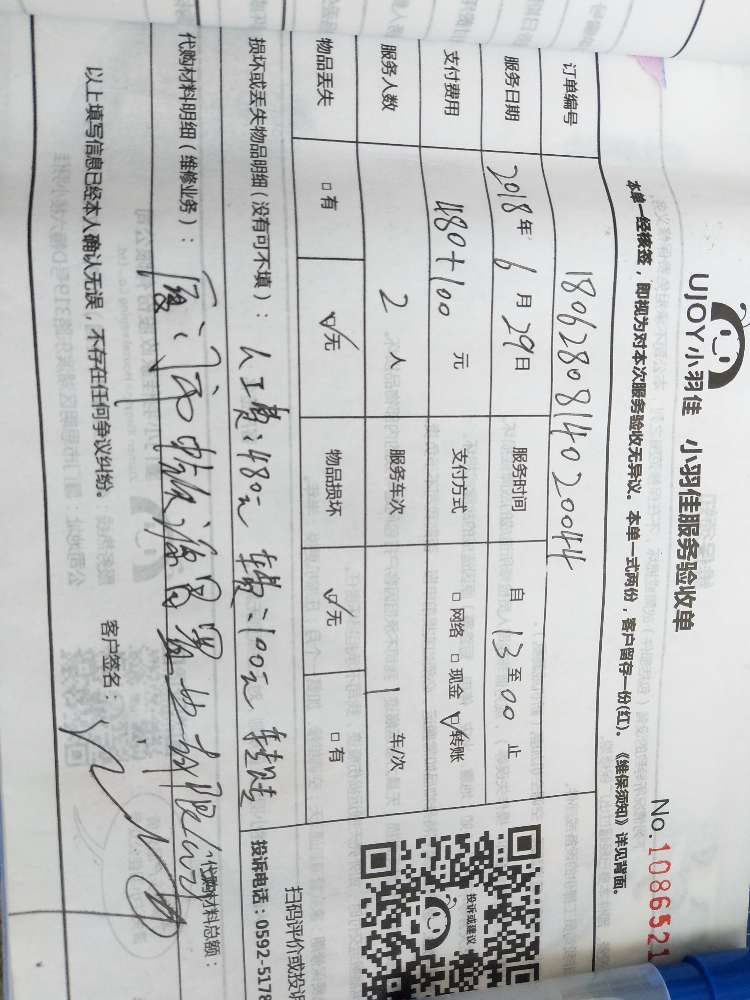 UJOY小羽佳 小羽佳服务验收单
No.1086521
本单一经核签，即视为对本次服务验收无异议。本单一式两份，客户留存一份(红)。《维保须知》详见背面。
订单编号 1806280814020044
服务日期 2018年6月29日 服务时间 自13至00止
支付费用 480+100 元 支付方式 □网络 □现金 ☑转账
服务人数 2人 服务车次 1 车/次
物品丢失 □有 ☑无 物品损坏 ☑无 □有
投诉或建议
扫码评价或投诉
投诉电话：0592-5178
损坏或丢失物品明细（没有可不填）：人工费：480元 车费：100元 转账
代购材料明细（维修业务）：厦门
代购材料总额：
以上填写信息已经本人确认无误，不存在任何争议纠纷。 客户签名：